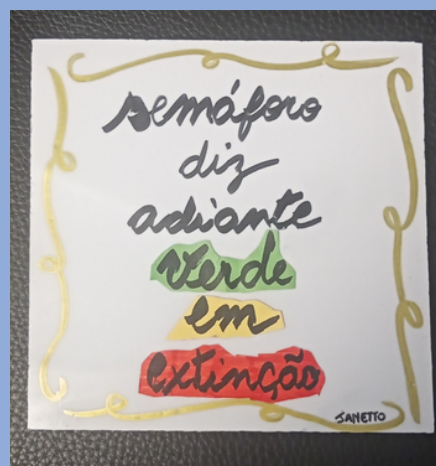 semáforo
diz
adiante
Verde
em
extinção
JANETTO